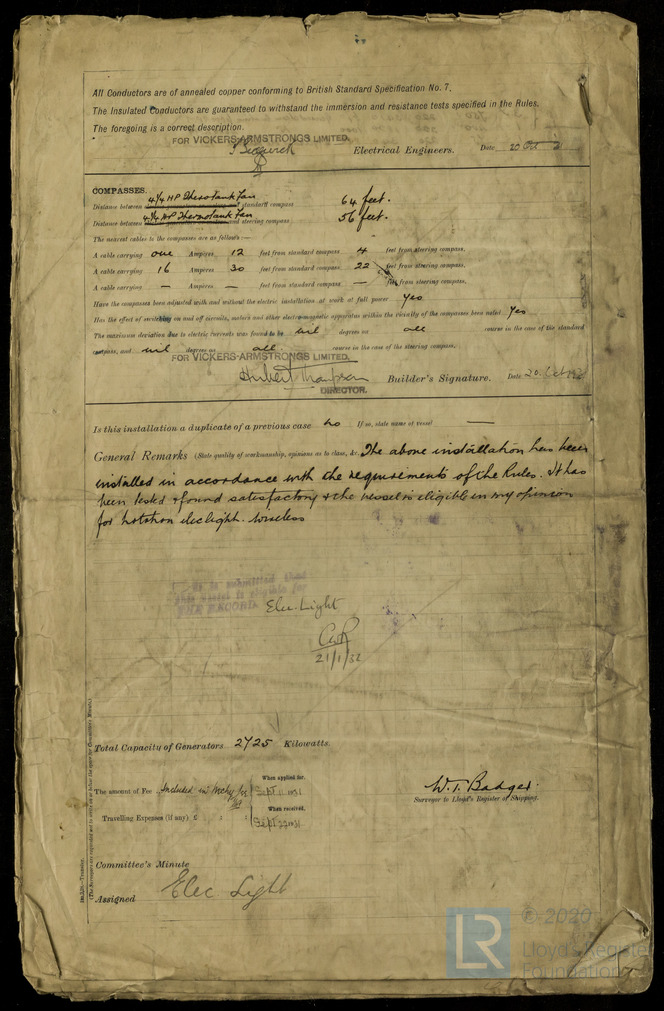 All Conductors are of annealed copper conforming to British Standard Specification No. 7.
The Insulated Conductors are guaranteed to withstand the immersion and resistance tests specified in the Rules.
The foregoing is a correct description.
FOR VICKERS-ARMSTRONGS LIMITED,
Electrical Engineers. Date 20 Oct 31
COMPASSES.
Distance between 4¼ HP Thermotank Fan standard compass 64 feet.
Distance between 4¼ HP Thermotank Fan and steering compass 56 feet.
The nearest cables to the compasses are as follows:—
A cable carrying one Ampères 12 feet from standard compass 4 feet from steering compass.
A cable carrying 16 Ampères 30 feet from standard compass 22 feet from steering compass.
A cable carrying — Ampères — feet from standard compass — feet from steering compass.
Have the compasses been adjusted with and without the electric installation at work at full power yes
Has the effect of switching on and off circuits, motors and other electro-magnetic apparatus within the vicinity of the compasses been noted yes
The maximum deviation due to electric currents was found to be nil degrees on all course in the case of the standard
compass, and nil degrees on all course in the case of the steering compass.
FOR VICKERS-ARMSTRONGS LIMITED,
Hubert Thompson Builder's Signature. Date 20. Oct 1931
DIRECTOR.
Is this installation a duplicate of a previous case no If so, state name of vessel —
General Remarks (State quality of workmanship, opinions as to class, &c. The above installation has been
installed in accordance with the requirements of the Rules. It has
been tested & found satisfactory & the vessel is eligible in my opinion
for notation elec light. wireless
It is submitted that
this vessel is eligible for
THE RECORD. Elec. Light
21/1/32
Total Capacity of Generators 2725 Kilowatts.
The amount of Fee Included in Mchy fee
When applied for,
Sept 11 1931
When received,
Travelling Expenses (if any) £ : :
Sept 22 1931
W. T. Badger.
Surveyor to Lloyd's Register of Shipping.
Committee's Minute
Assigned Elec. Light
LR © 2020
Lloyd's Register
Foundation